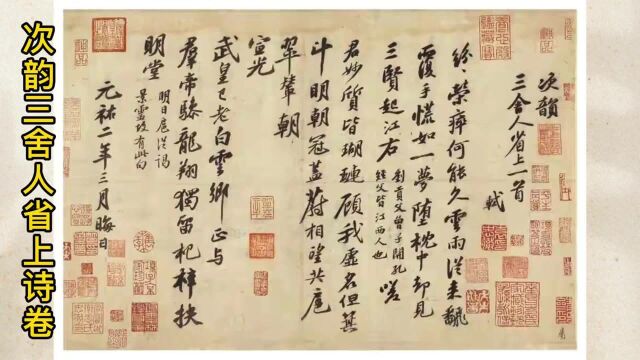 次韵三舍人省上诗卷
次韻
三舍人省上一首
軾
紛〻榮瘁何能久雲雨從來翻
覆手慌如一夢墮枕中却見
三賢起江右
劉貢父曾子開孔
經父皆江西人也
嗟
君妙質皆瑚璉顧我虛名但箕
斗明朝冠蓋蔚相望共扈
翠輦朝
宣光
武皇已老白雲鄉正與
羣帝驂龍翔獨留杞梓扶
明堂
明日扈從謁
景靈故有此句
元祐二年三月晦日